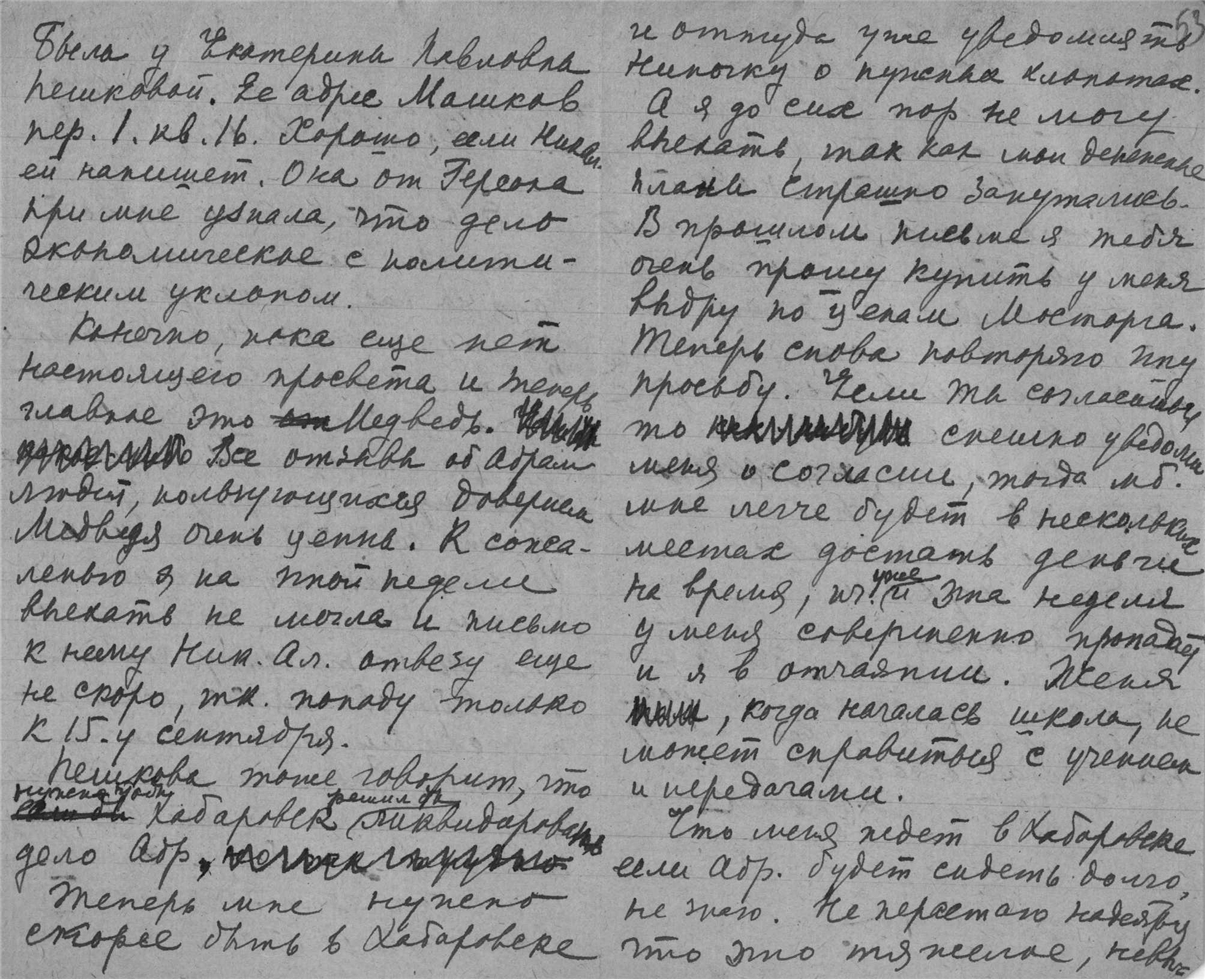 Была у Екатерины Павловны
Пешковой. Ее адрес Машков
пер. 1. кв. 16. Хорошо, если Никол.
ей напишет. Она от Герсона
при мне узнала, что дело
экономическое с полити-
ческим уклоном.
Конечно, пока еще нет
настоящего просвета и теперь
главное это Медведь.
Все отзывы об Абраме
людей, пользующихся доверием
Медведя очень ценны. К сожа-
ленью я на этой недели
выехать не могла и письмо
к нему Ник. Ал. отвезу еще
не скоро, т.к. попаду только
к 15-у сентября.
Пешкова тоже говорит, что
нужно чтобы Хабаровск решил бы ликвидировать
дело Абр.
Теперь мне нужно
скорее быть в Хабаровске
53
и оттуда уже уведомлять
Ниночку о нужных хлопотах.
А я до сих пор не могу
выехать, так как мои денежные
планы страшно запутались.
В прошлом письме я тебя
очень прошу купить у меня
выдру по ценам Мосторга.
Теперь снова повторяю эту
просьбу. Если ты согласишься
то спешно уведоми
меня о согласии, тогда мб.
мне легче будет в нескольких
местах достать деньги
на время, нч. уже и эта неделя
у меня совершенно пропадает
и я в отчаянии. Женя
, когда началась школа, не
может справиться с учением
и передачами.
Что меня ждет в Хабаровске
если Абр. будет сидеть долго,
не знаю. Не перестаю надеяться
что это тяжелое, невы-